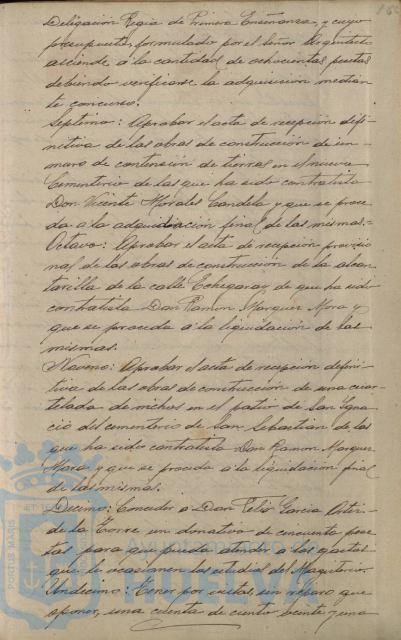 Delegación Regia de Primera Enseñanza, y cuyo
presupuesto, formulado por el Señor Arquitecto
asciende á la cantidad de ochocientas pesetas
debiendo verificarse la adquisicion median-
te concurso.
Septimo: Aprobar el acta de recepción defi-
nitiva de las obras de construcción de un
muro de contensión de tierras en el nuevo
Cementerio de las que ha sido contratista
Don Vicente Morales Candela y que se proce-
da a la adquidiación final de las mismas.=
Octavo: Aprobar el acta de recepción provisio-
nal de las obras de construcción de la alcan-
tarilla de la calle Echegaray, de que ha sido
contratista Don Ramon Marquez Mora y
que se proceda á la liquidación de las
mismas.
Noveno: Aprobar el acta de recepción defini-
tiva de las obras de construcción de una cuar-
telada de nichos en el patio de San Igna-
cio del cementerio de San Sebastian de las
que ha sido contratista Don Ramon Marquez
Mora y que se proceda á la liquidación final
de las mismas.
Decimo: Conceder a Don Felix Garcia
de la Torre un donativo de cincuenta pese-
tas para que pueda atender a los gastos
que le ocasionen los estudios del Magisterio.
Undecimo: Tener por vistas, sin reparo que
oponer, una cuenta de ciento veinte y una
PORTUS MARIS
HUELVA